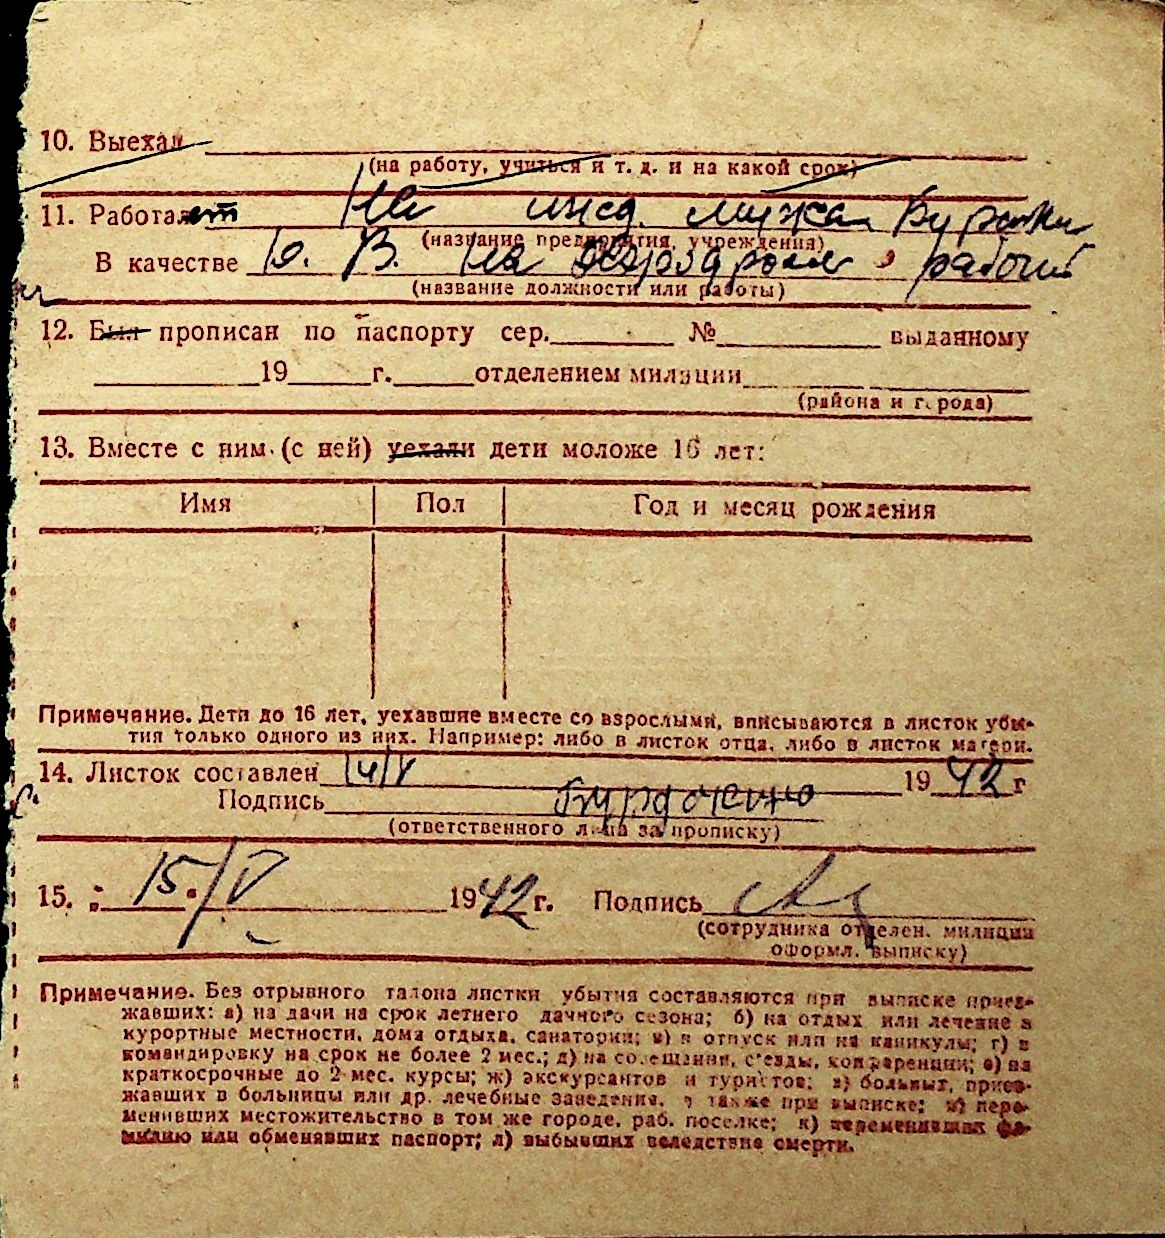 10. Выехал
(на работу, учиться и т. д. и на какой срок)
11. Работает На ижд. мужа
(название предприятия, учреждения)
В качестве В. На аэродроме, рабочий
(название должности или работы)
12. Был прописан по паспорту сер. № выданному
19 г. отделением милиции
(района и города)
13. Вместе с ним (с ней) уехали дети моложе 16 лет:
Имя Пол Год и месяц рождения
Примечание. Дети до 16 лет, уехавшие вместе со взрослыми, вписываются в листок убы-
тия только одного из них. Например: либо в листок отца, либо в листок матери.
14. Листок составлен 14/V 1942 г
Подпись
(ответственного лица за прописку)
15. 15/V 1942 г. Подпись
(сотрудника отделен. милиции
оформл. выписку)
Примечание. Без отрывного талона листки убытия составляются при выписке приез-
жавших: а) на дачи на срок летнего дачного сезона; б) на отдых или лечение в
курортные местности, дома отдыха, санатории; в) в отпуск или на каникулы; г) в
командировку на срок не более 2 мес.; д) на совещания, с'езды, конференции; е) на
краткосрочные до 2 мес. курсы; ж) экскурсантов и туристов; з) больных, приез-
жавших в больницы или др. лечебные заведения, а также при выписке; и) пере-
менивших местожительство в том же городе, раб. поселке; к) переменивших фа-
милию или обменявших паспорт; л) выбывших вследствие смерти.